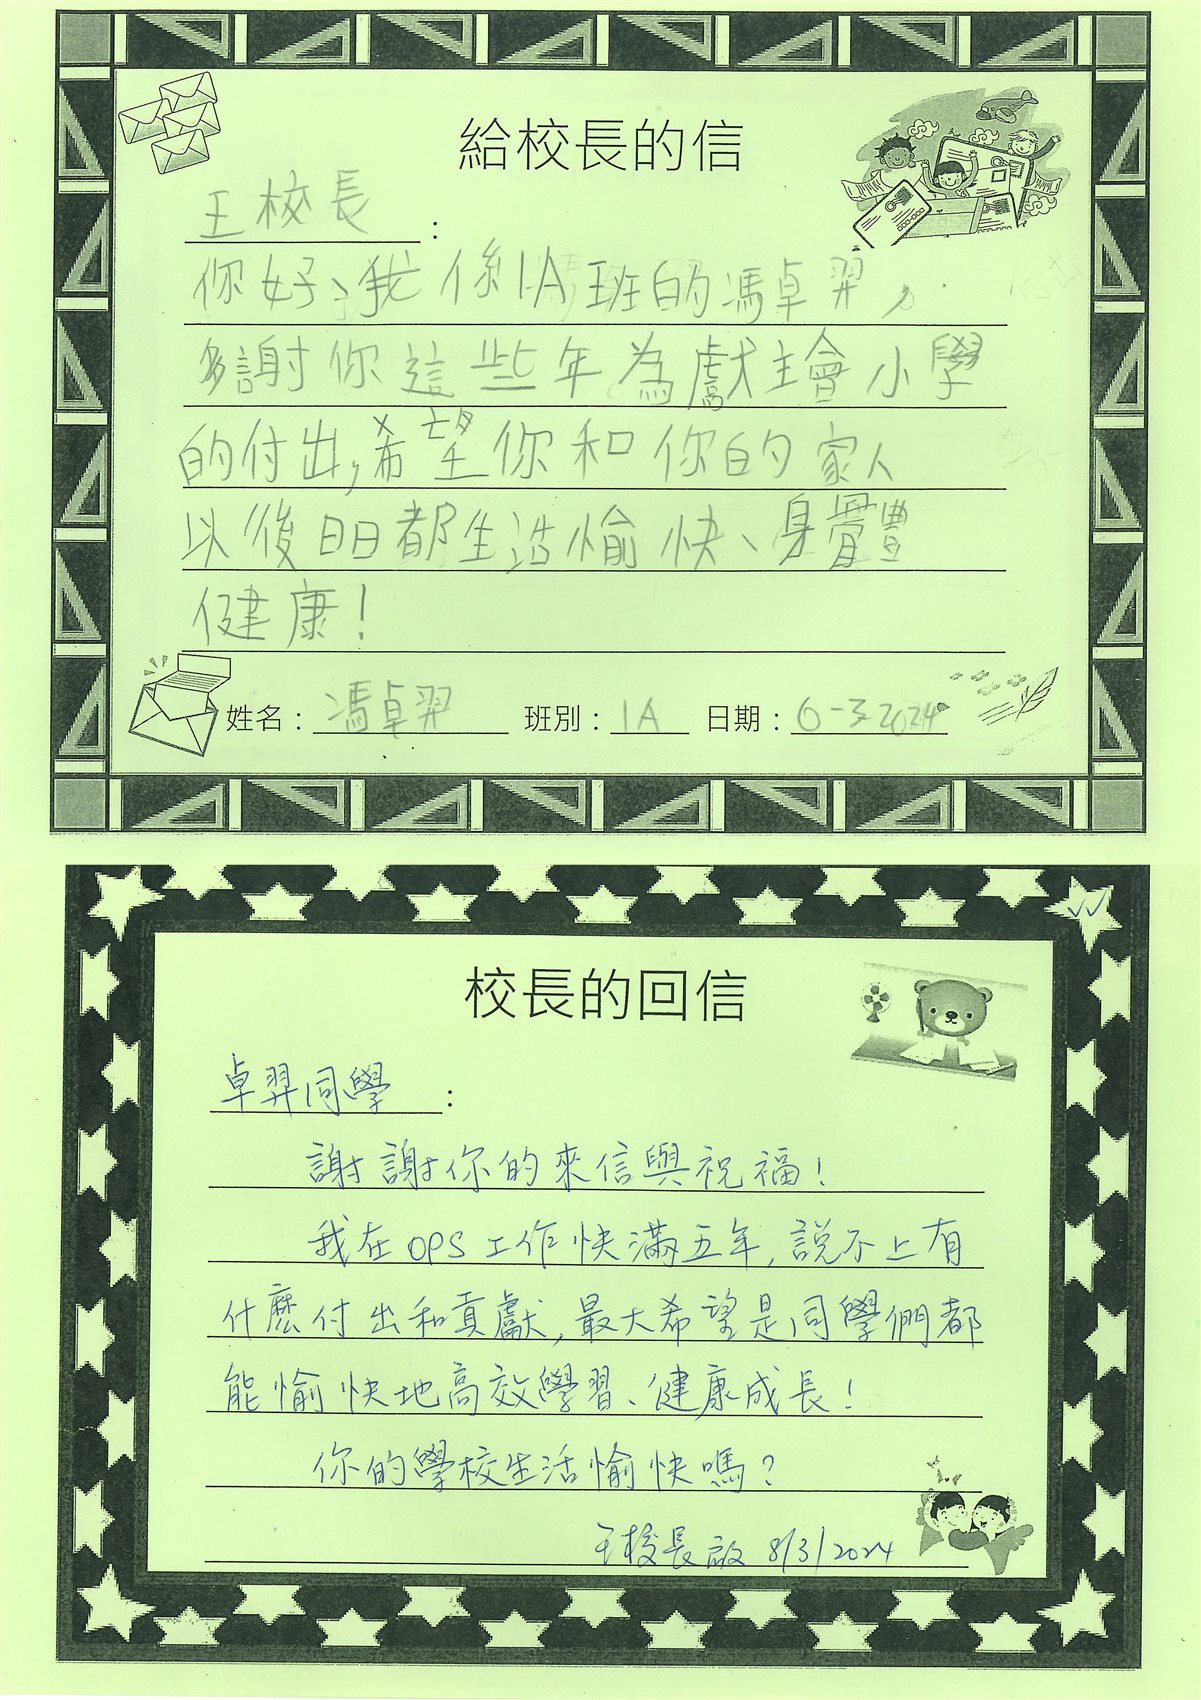 給校長的信
王校長：
你好、我係1A班的馮卓羿，
多謝你這些年為獻主會小學
的付出，希望你和你的家人
以後日日都生活愉快、身體
健康！
姓名：馮卓羿 班別：1A 日期：6-3-2024
校長的回信
卓羿同學：
謝謝你的來信與祝福！
我在OPS工作快滿五年，說不上有
什麼付出和貢獻，最大希望是同學們都
能愉快地高效學習、健康成長！
你的學校生活愉快嗎？
王校長啟 8/3/2024